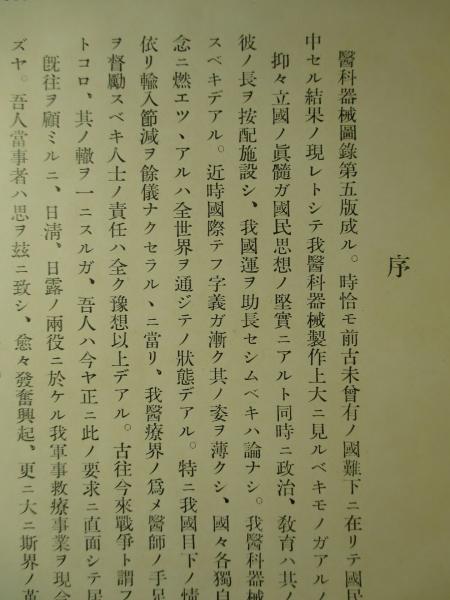 序
醫科器械圖錄第五版成ル。時恰モ前古未曾有ノ國難下ニ在リテ國民
中セル結果ノ現レトシテ我醫科器械製作上大ニ見ルベキモノガアルノ
抑々立國ノ眞髓ガ國民思想ノ堅實ニアルト同時ニ政治、敎育ハ其ノ
彼ノ長ヲ按配施設シ、我國運ヲ助長セシムベキハ論ナシ。我醫科器械
スベキデアル。近時國際テフ字義ガ漸ク其ノ姿ヲ薄クシ、國々各獨自
念ニ燃エツヽアルハ全世界ヲ通ジテノ狀態デアル。特ニ我國目下ノ情
依リ輸入節減ヲ餘儀ナクセラルヽニ當リ、我醫療界ノ爲メ醫師ノ手足
ヲ督勵スベキ人士ノ責任ハ全ク豫想以上デアル。古往今來戰爭ト謂フ
トコロ、其ノ轍ヲ一ニスルガ、吾人ハ今ヤ正ニ此ノ要求ニ直面シテ居
旣往ヲ顧ミルニ、日淸、日露ノ兩役ニ於ケル我軍事救療事業ヲ現今
ズヤ。吾人當事者ハ思ヲ玆ニ致シ、愈々發奮興起、更ニ大ニ斯界ノ革